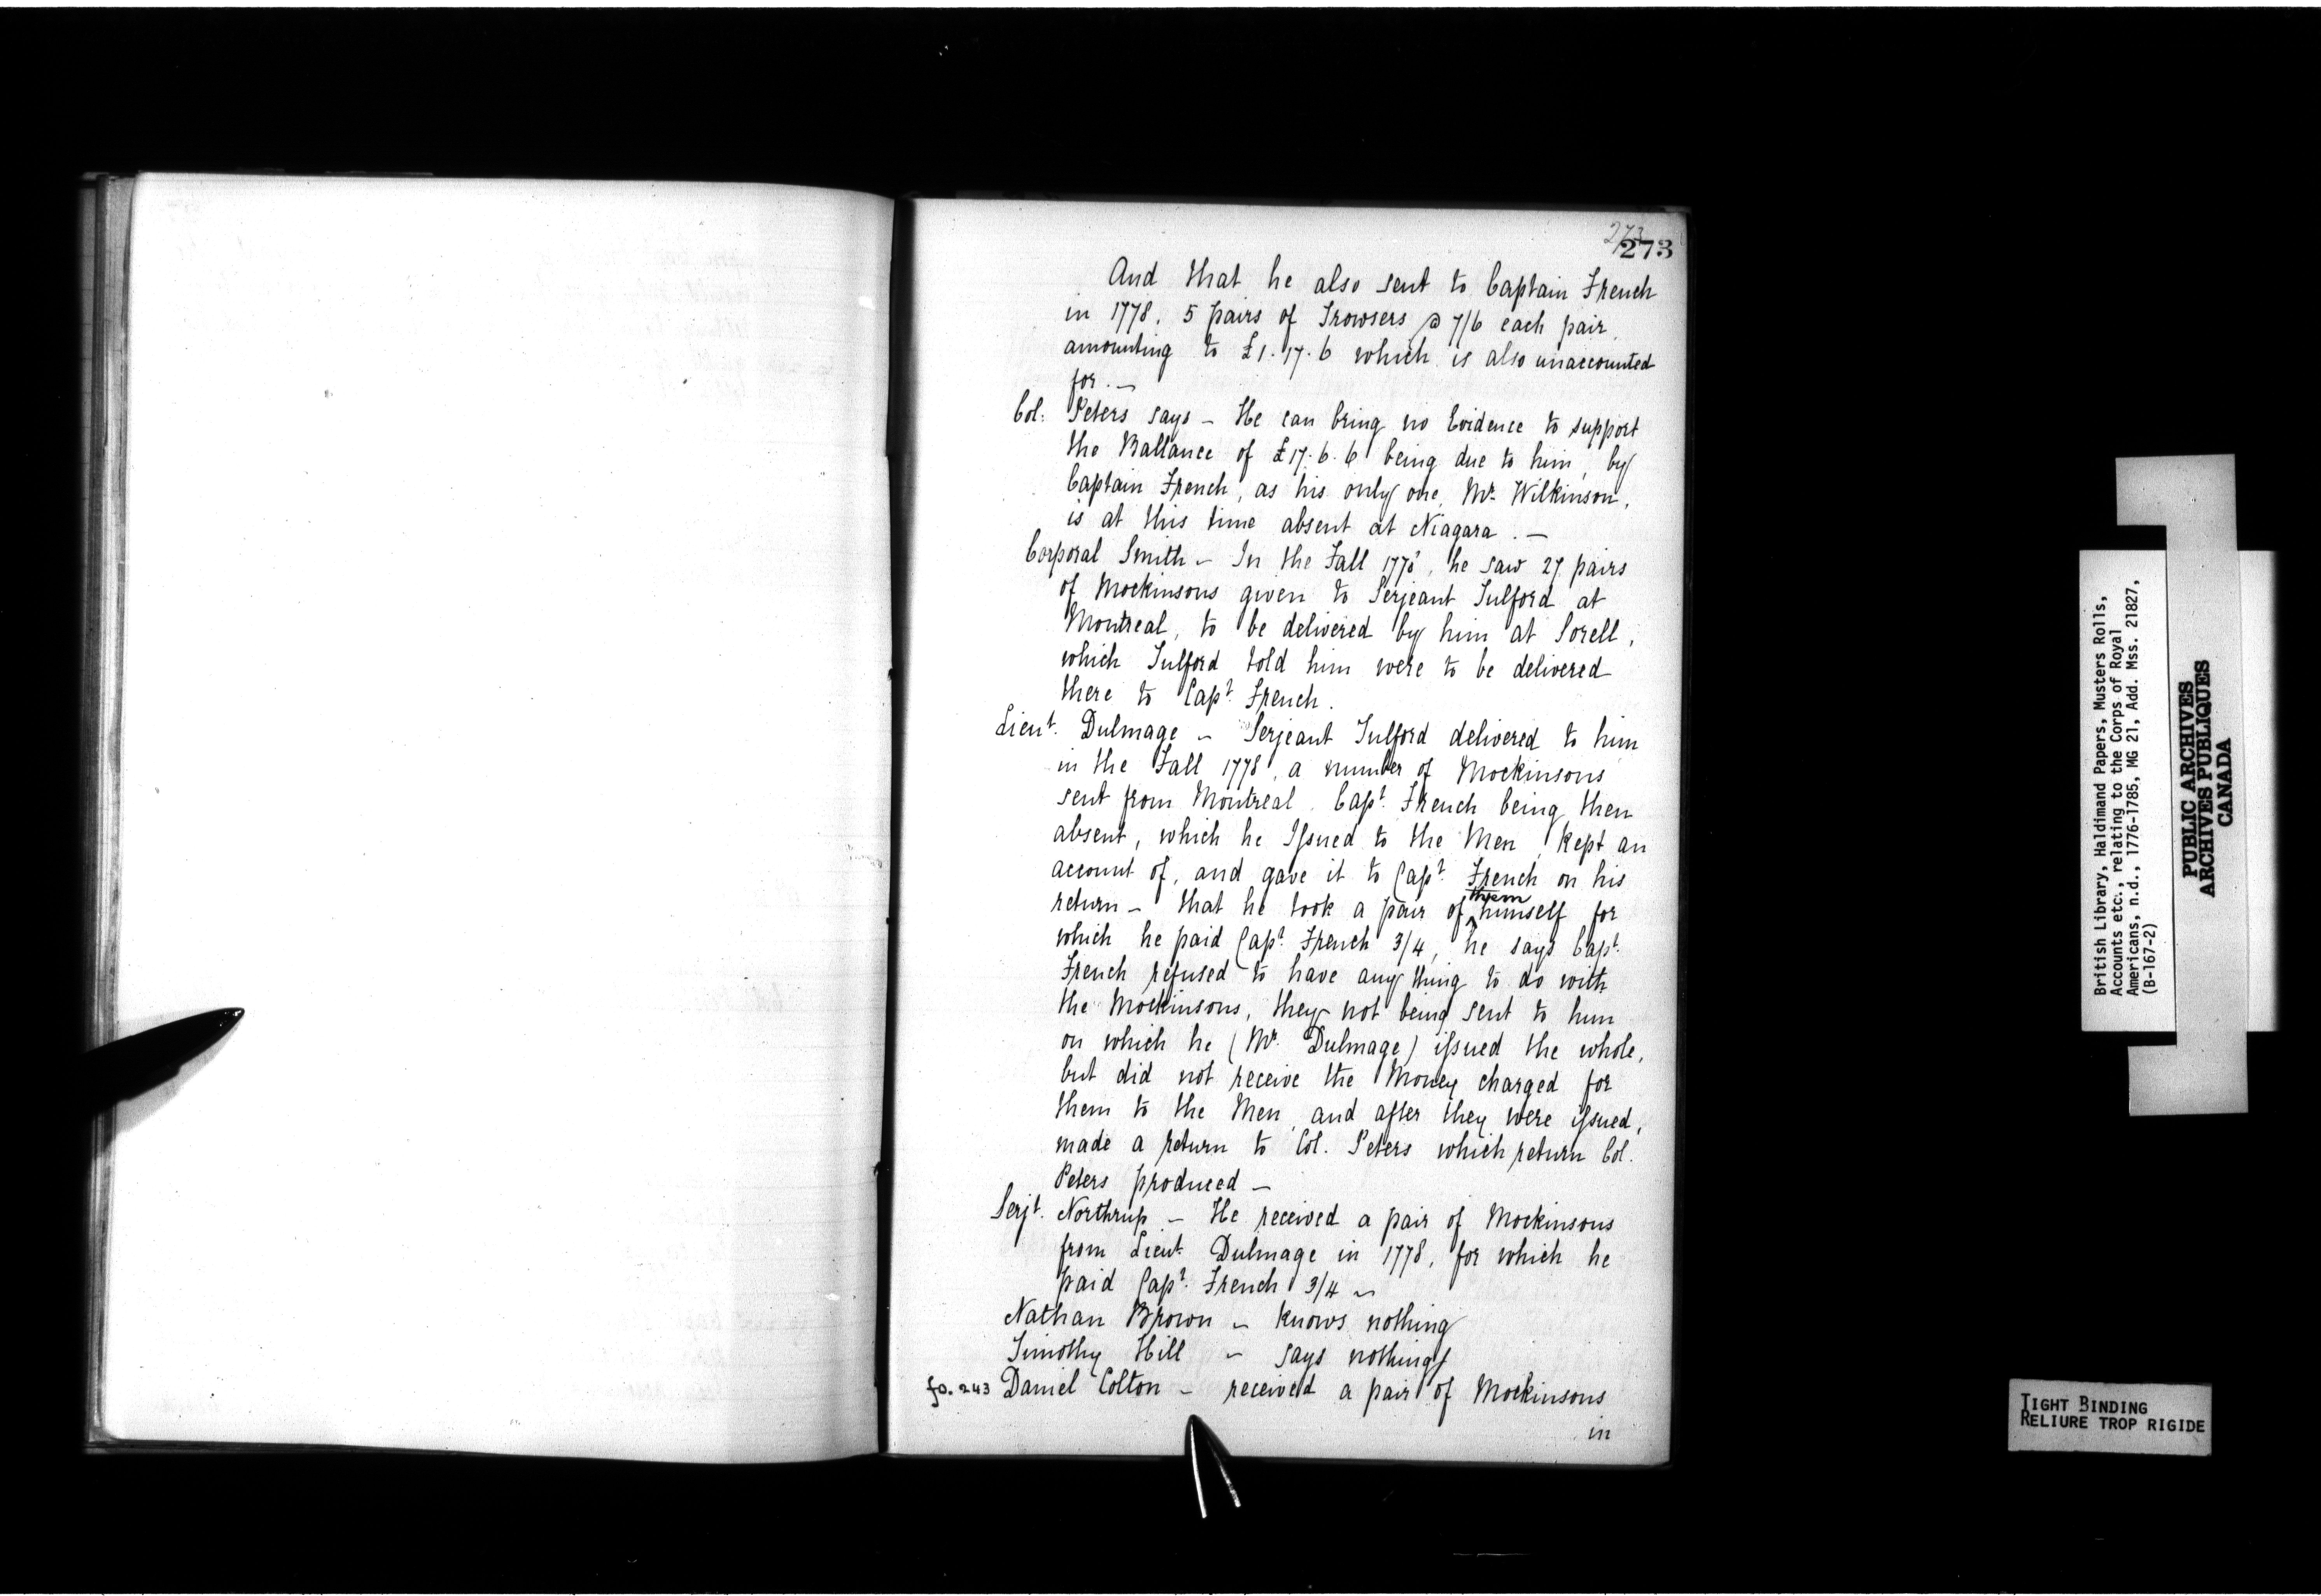 273
273
And that he also sent to Captain French
in 1778, 5 pairs of Trowsers @ 7/6 each pair,
amounting to £1.17.6 which is also unaccounted
for. —
Col: Peters says — He can bring no Evidence to support
the Ballance of £17.6.6 being due to him, by
Captain French, as his only one, Mr. Wilkinson,
is at this time absent at Niagara. —
Corporal Smith — In the Fall 1778, he saw 27 pairs
of Mockinsons given to Serjeant Tulford at
Montreal, to be delivered by him at Sorell,
which Tulford told him were to be delivered
there to Capt. French.
Lieut. Dulmage — Serjeant Tulford delivered to him
in the Fall 1778, a number of Mockinsons
sent from Montreal, Capt. French being then
absent, which he Issued to the Men, Kept an
account of, and gave it to Capt. French on his
return — that he took a pair of them himself for
which he paid Capt. French 3/4, he says Capt.
French refused to have any thing to do with
the Mockinsons, they not being sent to him
on which he (Mr. Dulmage) issued the whole,
but did not receive the Money charged for
them to the Men, and after they were issued,
made a return to Col. Peters which return Col.
Peters produced —
Serjt. Northrup — He received a pair of Mockinsons
from Lieut. Dulmage in 1778, for which he
paid Capt. French 3/4 —
Nathan Brown — Knows nothing
Timothy Hill — says nothing
fo. 243 Daniel Colton — received a pair of Mockinsons
in
British Library, Haldimand Papers, Musters Rolls,
Accounts etc., relating to the Corps of Royal
Americans, n.d., 1776-1785, MG 21, Add. Mss. 21827,
(B-167-2)
PUBLIC ARCHIVES
ARCHIVES PUBLIQUES
CANADA
TIGHT BINDING
RELIURE TROP RIGIDE